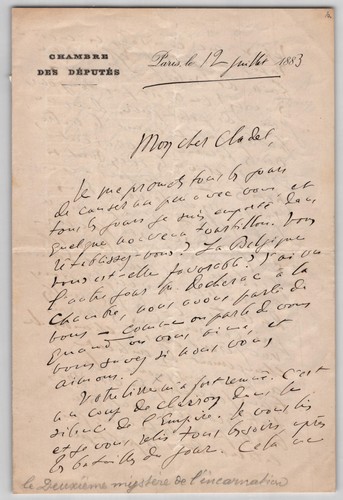 CHAMBRE
DES DÉPUTÉS
Paris le 12 juillet 1883
Mon cher Cladel,
Je me promets tous les jours
de causer un peu avec vous et
tous les jours je suis emporté dans
quelque nouveau tourbillon. Vous
rétablissez-vous? La Belgique
vous est-elle favorable? J'ai vu
l'autre jour à la
Chambre, nous avons parlé de
vous – comme on parle de vous
quand on vous aime, et
vous savez si nous vous
aimons.
Votre livre a fort remué. C'est
un coup de clairon dans le
silence de l'Empire. Je vous lis
et je vous relis tous les soirs, après
les batailles du jour. Cela
le Deuxième mystère de l'incarnation